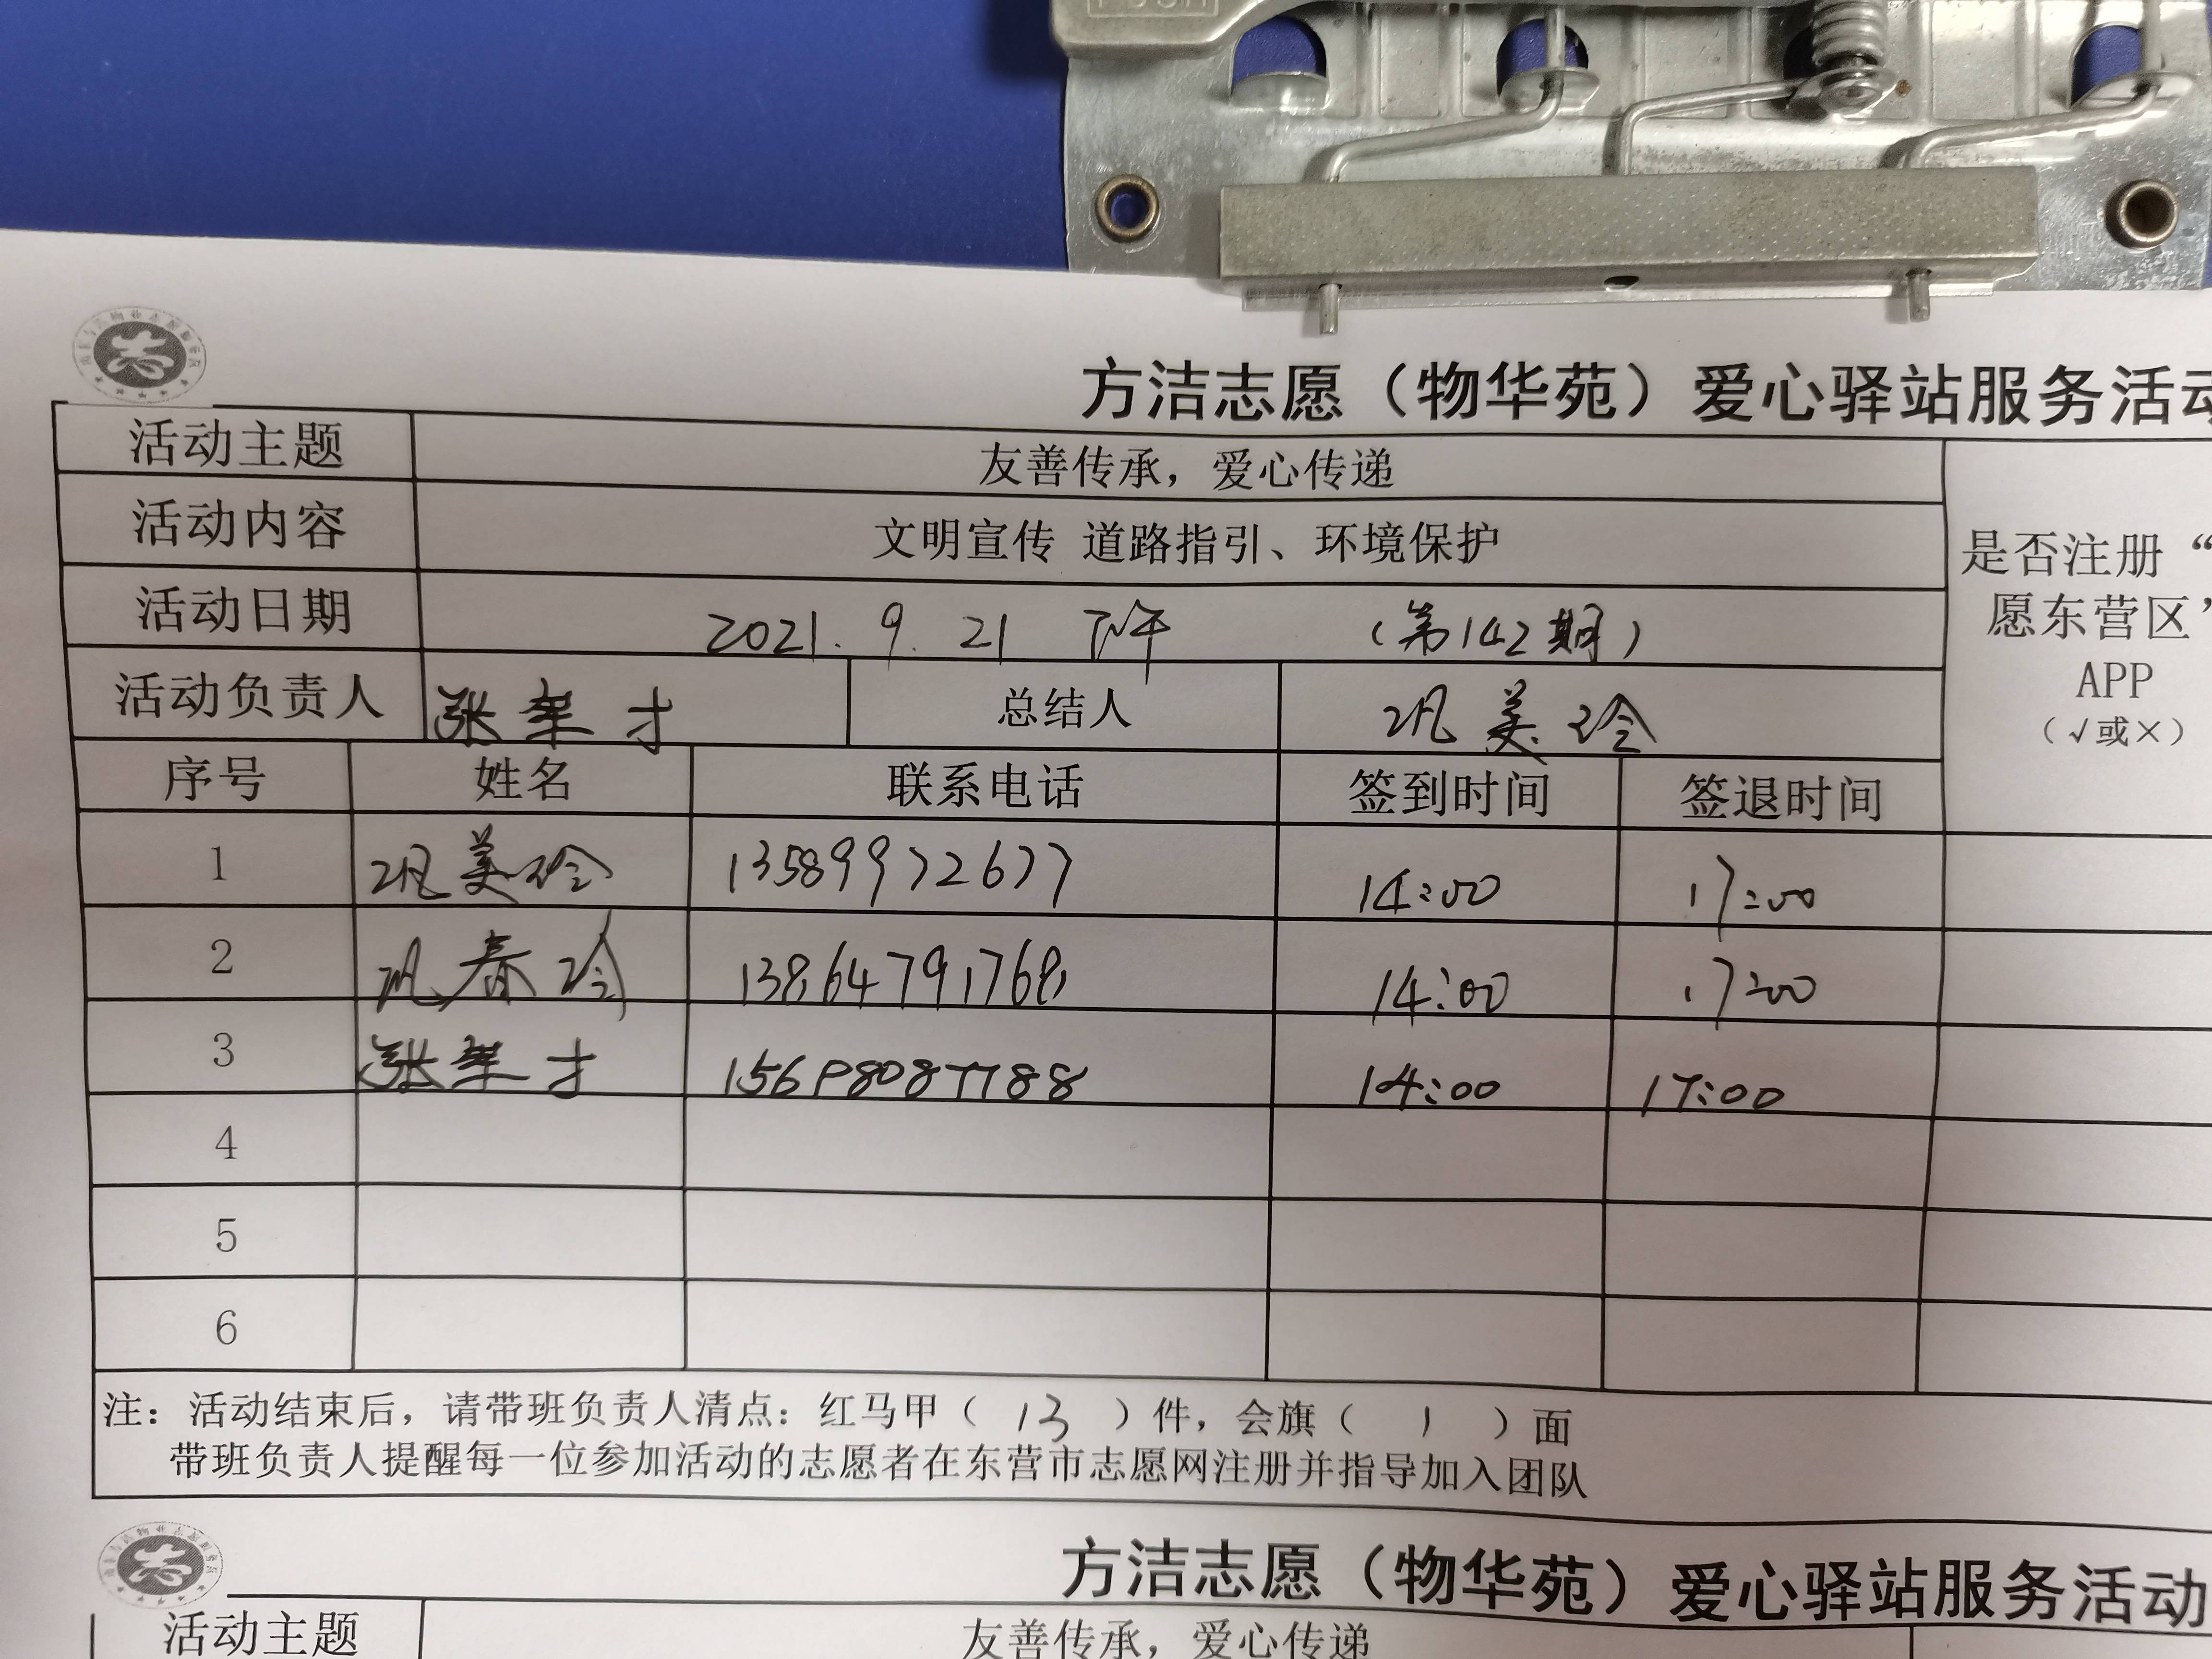 方洁志愿（物华苑）爱心驿站服务活动
活动主题 友善传承，爱心传递
活动内容 文明宣传 道路指引、环境保护
是否注册“
愿东营区”
APP
（√或×）
活动日期 2021.9.21 下午 （第142期）
活动负责人 张 才 总结人 巩美玲
序号 姓名 联系电话 签到时间 签退时间
1 巩美玲 13589972677 14:00 17:00
2 巩春玲 13864791768 14:00 17:00
3 张 才 14:00 17:00
4
5
6
注：活动结束后，请带班负责人清点：红马甲（ 13 ）件，会旗（ 1 ）面
带班负责人提醒每一位参加活动的志愿者在东营市志愿网注册并指导加入团队
方洁志愿（物华苑）爱心驿站服务活动
活动主题 友善传承，爱心传递